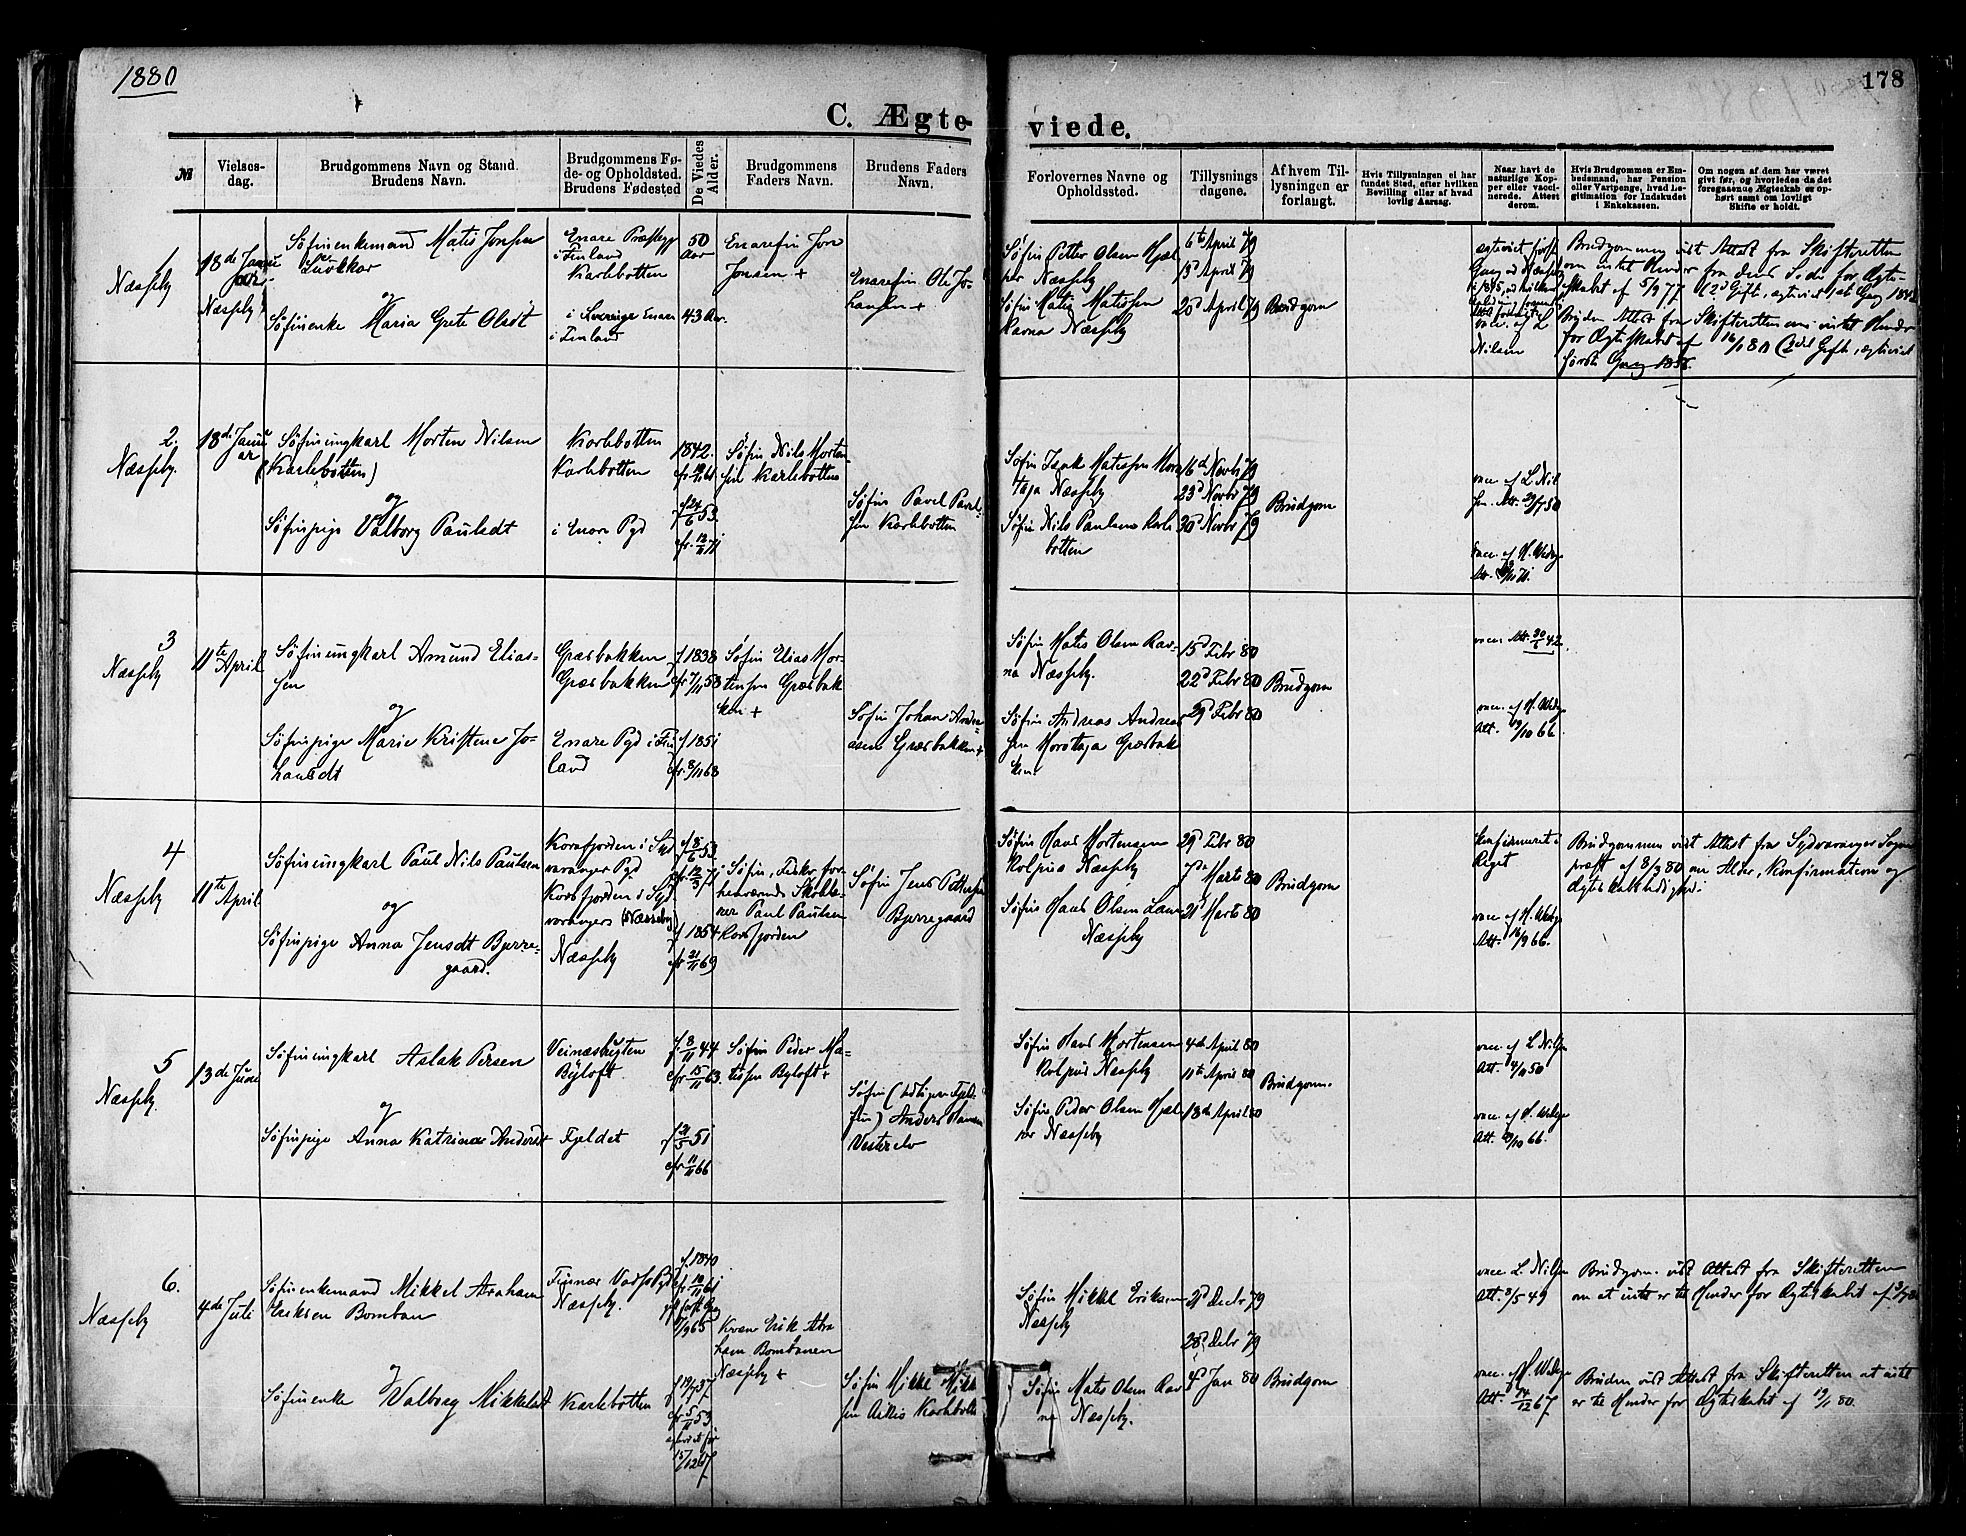 1880
178
C. Ægteviede.
№
Vielsesdag.
Brudgommens Navn og Stand.
Brudens Navn.
Brudgommens Føde- og Opholdsted.
Brudens Fødested
De Viedes Alder.
Brudgommens Faders Navn.
Brudens Faders Navn.
Forlovernes Navne og Opholdssted.
Tillysnings dagene.
Af hvem Tillysningen er forlangt.
Hvis Tillysningen ei har fundet Sted, efter hvilken Bevilling eller af hvad lovlig Aarsag.
Naar havt de naturlige Kopper eller vaccinerede. Attest derom.
Hvis Brudgommen er Embedsmand, har Pension eller Vartpenge, hvad Legitimation for Indskudet i Enkekassen.
Om nogen af dem har været givt før, og hvorledes da det foregaaende Ægteskab er ophørt samt om lovligt Skifte er holdt.
1
Næsseby
18de Januar
Næsseby
Søfinenkemand Matis Jonsen
og
Søfinenke Maria Grete Olsdt
Enare Præstegj
i Finland
Karlebotten
i Enare
i Finland
50 Aar
43 Aar.
Enarefin Jon
Jonsen +
Enarefin Ole Johansen +
Søfin Petter Olsen
Næsseby
Søfin Matis Matissen
Ravna Næsseby
6te April 79
13 April 79
20d April 79
Brudgom
vacc. af L
Nilsen
Brudgommen vist Attest fra Skifteretten
om intet Hinder fra dens Side for Ægteskabet af 5/9 77
Bruden Attest fra Skifteretten om intet Hinder
for Ægteskabet af
første Gang
2.
Næsseby.
18de Januar
Søfinungkarl Morten Nilsen
(Karlebotten)
og
Søfinpige Valborg Paulsdt
Karlebotten
Karlebotten
i Enare Pgd
1842.
f 24/6 53.
Søfin Nils Mortensen Karlebotten
Søfin Pavel Pavelsen Karlebotten
Søfin Isak Matissen
Næsseby
Søfin Nils Paulsen Karlebotten
16d Novbr 79
23d Novbr 79
30d Novbr 79
Brudgom
vacc af L Nilsen
vacc. af H. Wedege
3
Næsseby
11te April
Søfinungkarl Amund Eliassen
og
Søfinpige Marie Kristene Johansdt
Græsbakken
Græsbakken
Enare Pgd i Finland
f 1838
cfr 7/11 58
f 1851
cfr. 8/11 68
Søfin Elias Mortensen Græsbakken +
Søfin Johan Andreasen Græsbakken +
Søfin Matis Olsen Ravna Næsseby.
Søfin Andreas Andreassen Morotaja Græsbakken.
15d Febr 80
22d Febr 80
29d Febr 80
Brudgom
vacc. Att. 30/6 42.
vacc. af H. Wedege
Att. 19/10 66
4
Næsseby
11te April
Søfinungkarl Paul Nils Paulsen
og
Søfinpige Anna Jensdt Bjerregaard.
Korsfjorden i Sydvaranger Pgd
Korsfjorden i Sydvaranger (Næsseby)
Næsseby
f 8/6 53
f 1854
cfr 21/11 69
Søfin, Fisker forhenværende Skolelærer Paul Paulsen
Korsfjorden
Søfin Jens Pettersen
Bjerregaard
Søfin Hans Mortensen
Kolpus Næsseby
Søfin Hans Olsen
Næsseby
29d Febr 80
7d Marts 80
21d Marts 80
Brudgom
Konfirmeret i
Riget
vacc. af H. Wedege
Att. 16/9 66.
Brudgommen vist Attest fra Sydvaranger Sogne
præst af 8/3 80 om Alder, Konfirmation og
Ægteskabsledighed
5
Næsseby
13de Juni
Søfinungkarl Aslak Persen
og
Søfinpige Anna Katrine Andersdt
Veinesbugten
Byloft
Fjeldet
f. 8/11 44
cfr 15/11 63.
f 21/5 51
cfr 11/11 66
Søfin Peder Matissen Byloft +
Søfin (tidligere Fjeldfin) Anders Hansen
Vesterelv
Søfin Hans Mortensen
Kolpus Næsseby
Søfin Peder Olsen
Næsseby
4de April 80
11te April 80
18de April 80
Brudgom.
vacc. af L Nilsen
vacc. af H. Wedege
6.
Næsseby
4de Juli
Søfinenkemand Mikkel Abraham
Eriksen Bomban
og
Søfinenke Valborg Mikkelsdt
Næsseby.
Karlebotten
f. 1840
f 19/7 37
cfr 5/11 53
Kvæn Erik Abraham Bombanen
Næsseby +
Søfin Mikkel Mikkelsen Aikis Karlebotten
Søfin Mikkel Eriksen
Næsseby
Søfin Mats Olsen Ravna Næsseby.
21d Decbr 79
28d Debr 79
4d Jan 80
Brudgom
vacc L. Nilsen
Att. 8/5 49
vacc. af H. Wedege
Att. 14/12 67.
Brudgom. vist Attest fra Skifteretten
om at intet er til Hinder for Ægteskabet af
Bruden vist Attest fra Skifteretten at intet
er til Hinder for Ægteskabet af 19/1 80.